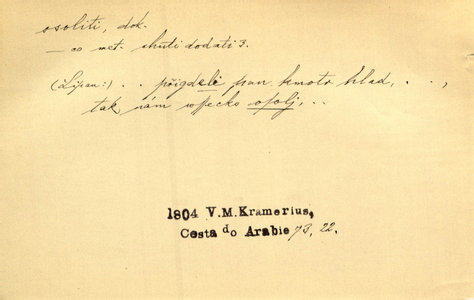 osoliti, dok.
— co met. chuti dodati 3.
(Lipan:) . . přigdeli pan kmotr hlad, . . . ,
tak nám wssecko osolj, . .
1804 V.M.Kramerius,
Cesta do Arabie 73, 22.